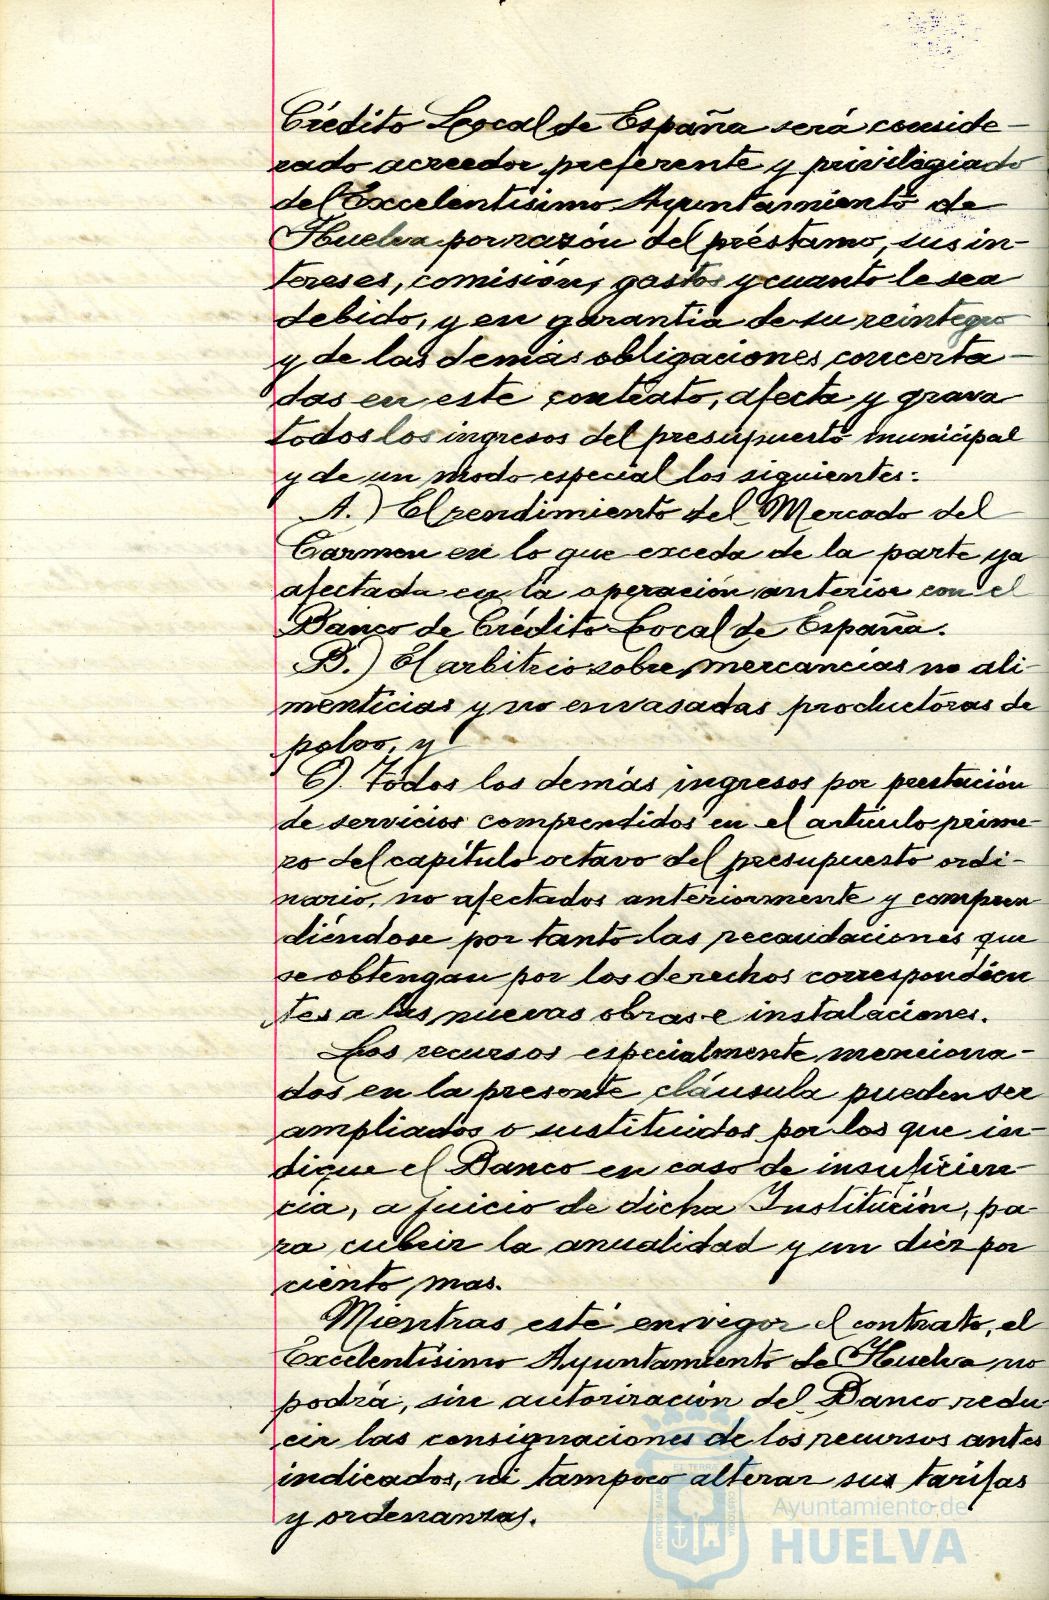 Crédito Local de España será conside-
rado acreedor preferente y privilegiado
del Excelentísimo Ayuntamiento de
Huelva por razón del préstamo, sus in-
tereses, comisión, gastos y cuanto le sea
debido, y en garantía de su reintegro
y de las demás obligaciones concerta-
das en este contrato, afecta y grava
todos los ingresos del presupuesto municipal
y de un modo especial los siguientes:
A.) El rendimiento del Mercado del
Carmen en lo que exceda de la parte ya
afectada en la operación anterior con el
Banco de Crédito Local de España.
B.) El arbitrio sobre mercancías no ali-
menticias y no envasadas productoras de
polvo, y
C). Todos los demás ingresos por prestación
de servicios comprendidos en el artículo prime-
ro del capítulo octavo del presupuesto ordi-
nario, no afectados anteriormente y compren
diéndose por tanto las recaudaciones que
se obtengan por los derechos correspondien
tes a las nuevas obras e instalaciones.
Los recursos especialmente menciona-
dos en la presente cláusula pueden ser
ampliados o sustituidos por los que in-
dique el Banco en caso de insuficien-
cia, a juicio de dicha Institución, pa-
ra cubrir la anualidad y un diez por
ciento mas.
Mientras esté en vigor el contrato, el
Excelentísimo Ayuntamiento de Huelva no
podrá, sin autorización del Banco redu-
cir las consignaciones de los recursos antes
indicados, ni tampoco alterar sus tarifas
y ordenanzas.
Ayuntamiento de
HUELVA